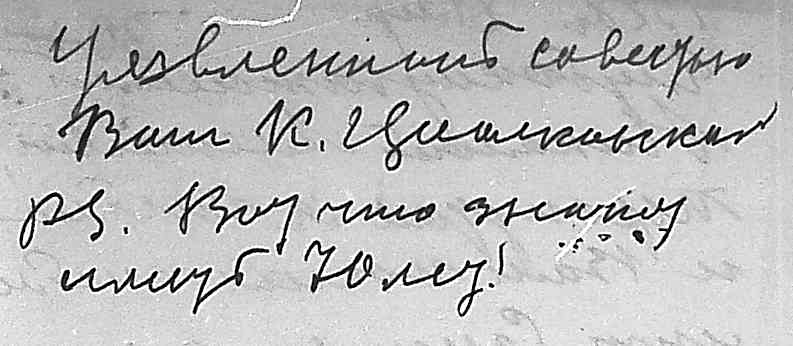 Уязвленный совестью
Ваш К. Циолковский
PS. Вот что значит
иметь 70 лет!